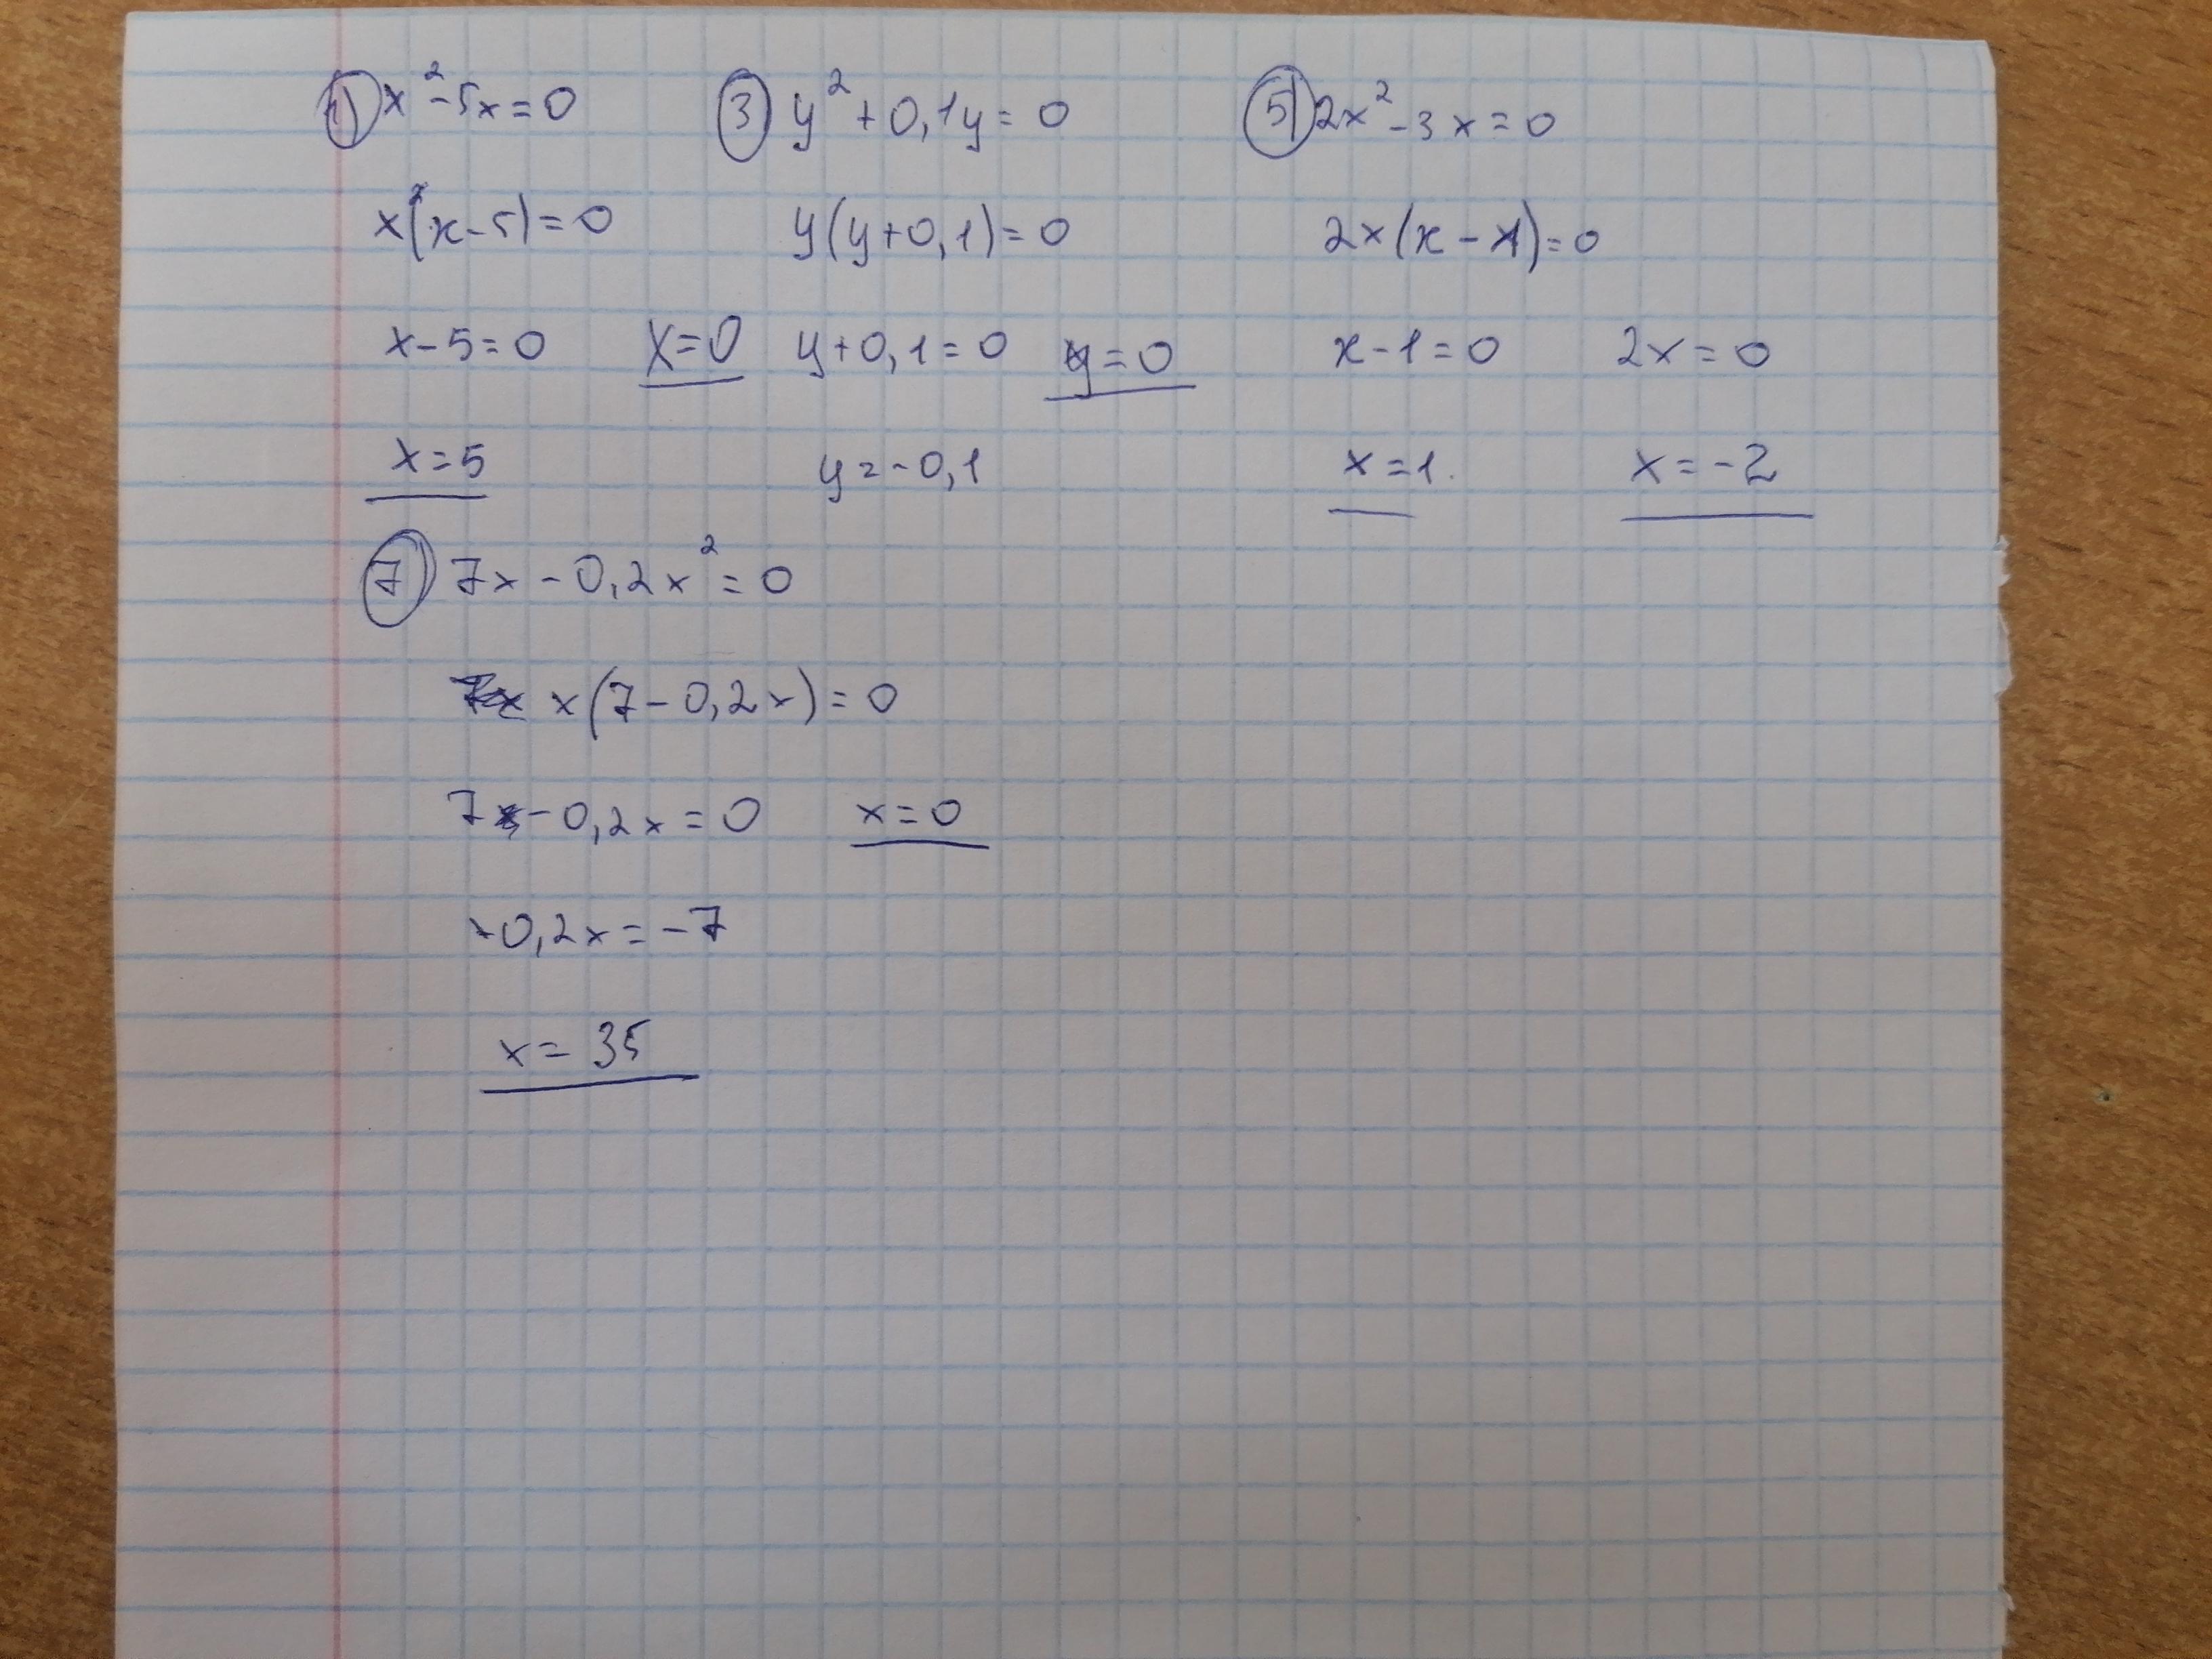 1) x²-5x=0
x(x-5)=0
x-5=0 x=0
x=5
3) y²+0,1y=0
y(y+0,1)=0
y+0,1=0 y=0
y=-0,1
5) 2x²-3x=0
2x(x-1)=0
x-1=0 2x=0
x=1. x=-2
7) 7x-0,2x²=0
x(7-0,2x)=0
7-0,2x=0 x=0
-0,2x=-7
x=35